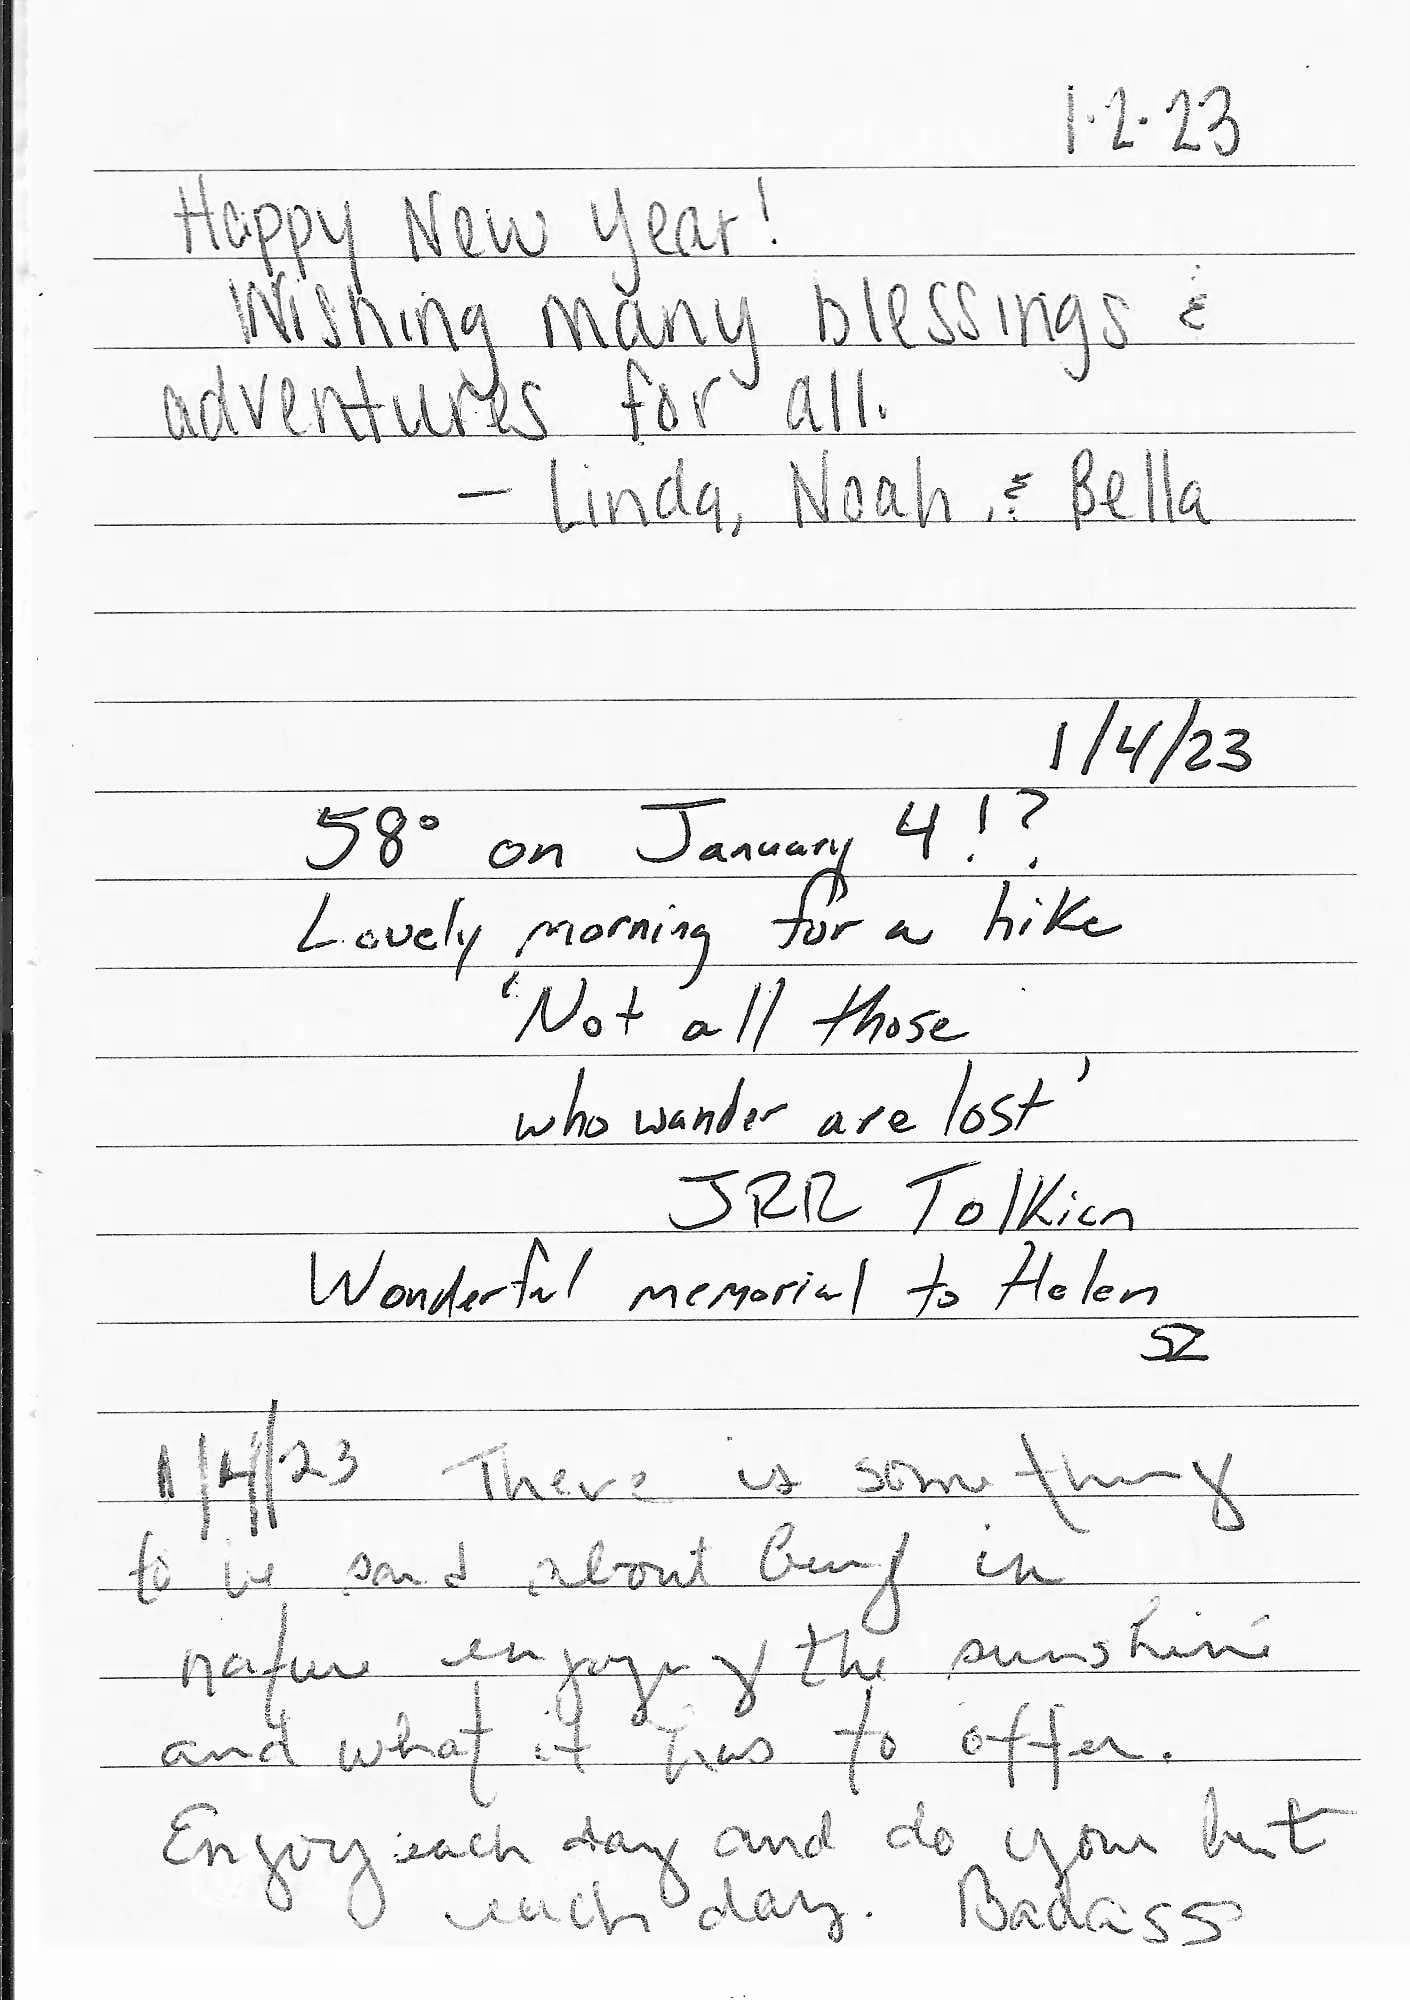 1·2·23
Happy New Year!
Wishing many blessings &
adventures for all.
— Linda, Noah, & Bella
1/4/23
58° on January 4!?
Lovely morning for a hike
'Not all those
who wander are lost'
JRR Tolkien
Wonderful memorial to Helen
SZ
1/4/23 There is something
to be said about being in
nature enjoying the sunshine
and what it has to offer.
Enjoy each day and do your best
each day. Badass